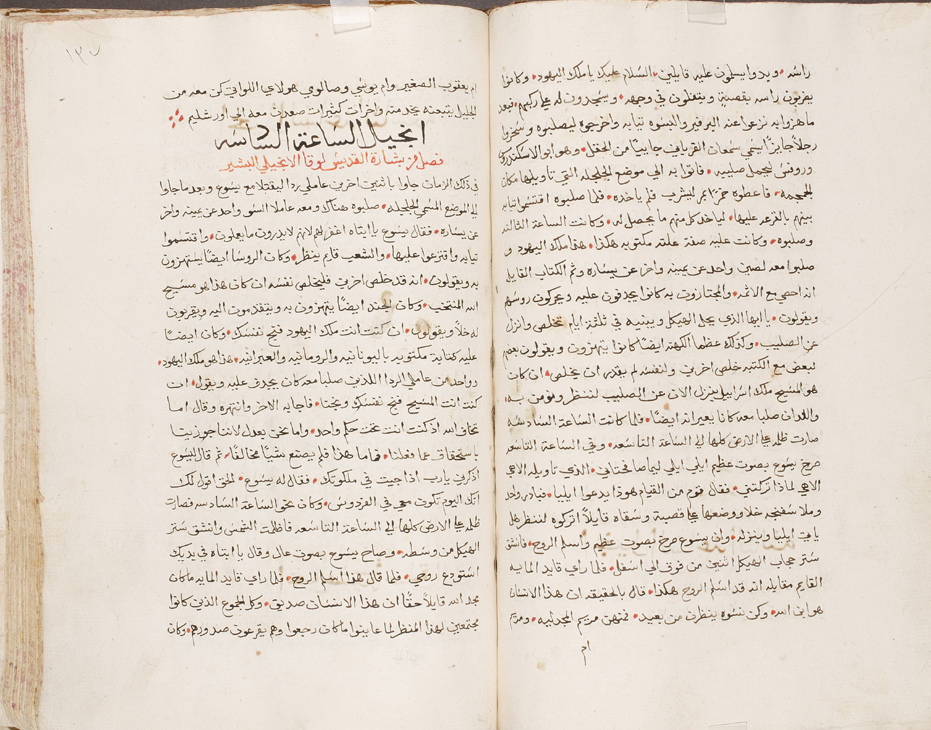 راسه • وبدوا يسلمون عليه قايلين • السلام عليك يا ملك اليهود • وكانوا
يضربون راسه بقصبة ويتفلون في وجهه • ويسجدون له علي ركبهم • فبعد
ما هزوا به نزعوا عنه البرفير والبسوه ثيابه واخرجوه ليصلبوه وسخروا
رجلاً جايزاً اسمه سمعان القرياني جايياً من الحقل • وهو ابو الاسكندر
وروفس ليحمل صليبه • فاتوا به الي موضع الجلجله التي تاويلها مكان
الجمجمه • فاعطوه خمراً بمر ليشرب فلم ياخذه • فلما صلبوه اقتسموا ثيابه
بينهم بالقرعه عليها • لياخد كل منهم ما يحصل له • وكانت الساعة الثالثه
وصلبوه • وكانت عليه صفة علته مكتوبه هكذا • هذا ملك اليهود و
صلبوا معه لصين واحد عن يمينه واخر عن يساره وتم الكتاب القايل
انه احصي مع الاثمه • والمجتازون به كانوا يجدفون عليه ويحركون روسهم
ويقولون • يا ايها الذي يحل الهيكل ويبنيه في ثلثة ايام تخلص وانزل
عن الصليب • وكذلك عظما الكهنه ايضاً كانوا يتهزون ويقولون بعضهم
لبعض مع الكتبه خلص اخرين ولنفسه لم يقدر ان يخلص • ان كان
هو المسيح ملك اسرايل فلينزل الان عن الصليب لننظر ونومن به •
واللذان صلبا معه كانا يعيرانه ايضاً • فلما كانت الساعة السادسه
صارت ظلمه علي الارض كلها الي الساعة التاسعه • وفي الساعة التاسعه
صرخ يسوع بصوت عظيم ايلي ايلي ليما صافختاني • الذي تاويله الاهي
الاهي لماذا تركتني • فقال قوم من القيام هوذا يدعوا ايليا • فبادر واحد
وملا سفنجه خلا ووضعها علي قصبة وسقاه قايلاً اتركوه لننظر هل
ياتي ايليا وينزله • وان يسوع صرخ بصوت عظيم واسلم الروح • فانشق
ستر حجاب الهيكل اثنين من فوق الي اسفل • فلما راي قايد المايه
القايم مقابله انه قد اسلم الروح هكذا • قال بالحقيقه ان هذا الانسان
هو ابن الله • وكن نسوه ينظرن من بعيد • فمنهن مريم المجدليه • ومريم
ام
١٣٧
ام يعقوب الصغير وام يوسي وصالومي هولاي اللواتي كن معه من
الجليل يتبعنه يخدمنه واخرات كثيرات صعدن معه الي اورشليم
انجيل الساعة السادسه
فصل من بشارة القديس لوقا الانجيلي البشير
في ذلك الزمان جاوا باثنين اخرين عاملي ردا ليقتلا مع يسوع وبعد ما جاوا
الي الموضع المسمي الجلجله • صلبوه هناك ومعه عاملا السو واحد عن يمينه واخر
عن يساره • فقال يسوع يا ابتاه اغفر لهم لانهم لا يدرون ما يعملون • واقتسموا
ثيابه واقترعوا عليها • والشعب قايم ينظر • وكان الروسا ايضاً يستهزون
به ويقولون • انه قد خلص اخرين فليخلص نفسه ان كان هذا هو مسيح
الله المنتخب • وكان الجند ايضاً يتهزون به ويتقدموت اليه ويقربون
له خلاً ويقولون • ان كنت انت ملك اليهود فنج نفسك • وكان ايضاً
عليه كتابة مكتوبه باليونانيه والرومانيه والعبرانيه • هذا هو ملك اليهود •
وواحد من عاملي الردا اللذين صلبا معه كان يجدف عليه ويقول • ان
كنت انت المسيح فنج نفسك ونجنا • فاجابه الاخر وانتهره وقال اما
تخاف الله اذ كنت انت تحت حكم واحد • واما نحن بعدل لاننا جوزينا
باستحقاق عما فعلنا • فاما هذا فلم يصنع شياً مخالفاً • ثم قال ليسوع
اذكرني يا رب اذا جيت في ملكوتك • فقال له يسوع • الحق اقول لك
انك اليوم تكون معي في الفردوس • وكان نحو الساعة السادسه فصارت
ظلمه علي الارض كلها الي الساعة التاسعه فاظلمت الشمس وانشق ستر
الهيكل من وسطه • وصاح يسوع بصوت عال وقال يا ابتاه في يديك
استودع روحي • فلما قال هذا اسلم الروح • فلما راي قايد المايه ما كان
مجد الله قايلاً حقاً ان هذا الانسان صديق • وكل الجموع الذين كانوا
مجتمعين لهذا المنظر لما عاينوا ما كان رجعوا وهم يقرعون صدورهم • وكان